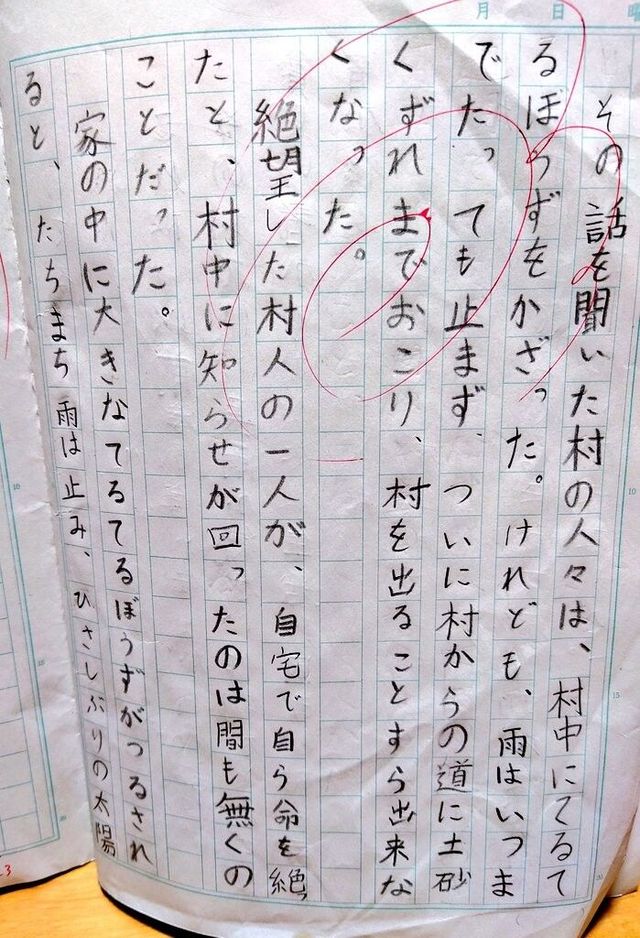 月　日　曜
その話を聞いた村の人々は、村中にてるて
るぼうずをかざった。けれども、雨はいつま
でたっても止まず、ついに村からの道に土砂
くずれまでおこり、村を出ることすら出来な
くなった。
絶望した村人の一人が、自宅で自ら命を絶っ
たと、村中に知らせが回ったのは間も無くの
ことだった。
家の中に大きなてるてるぼうずがつるされ
ると、たちまち雨は止み、ひさしぶりの太陽